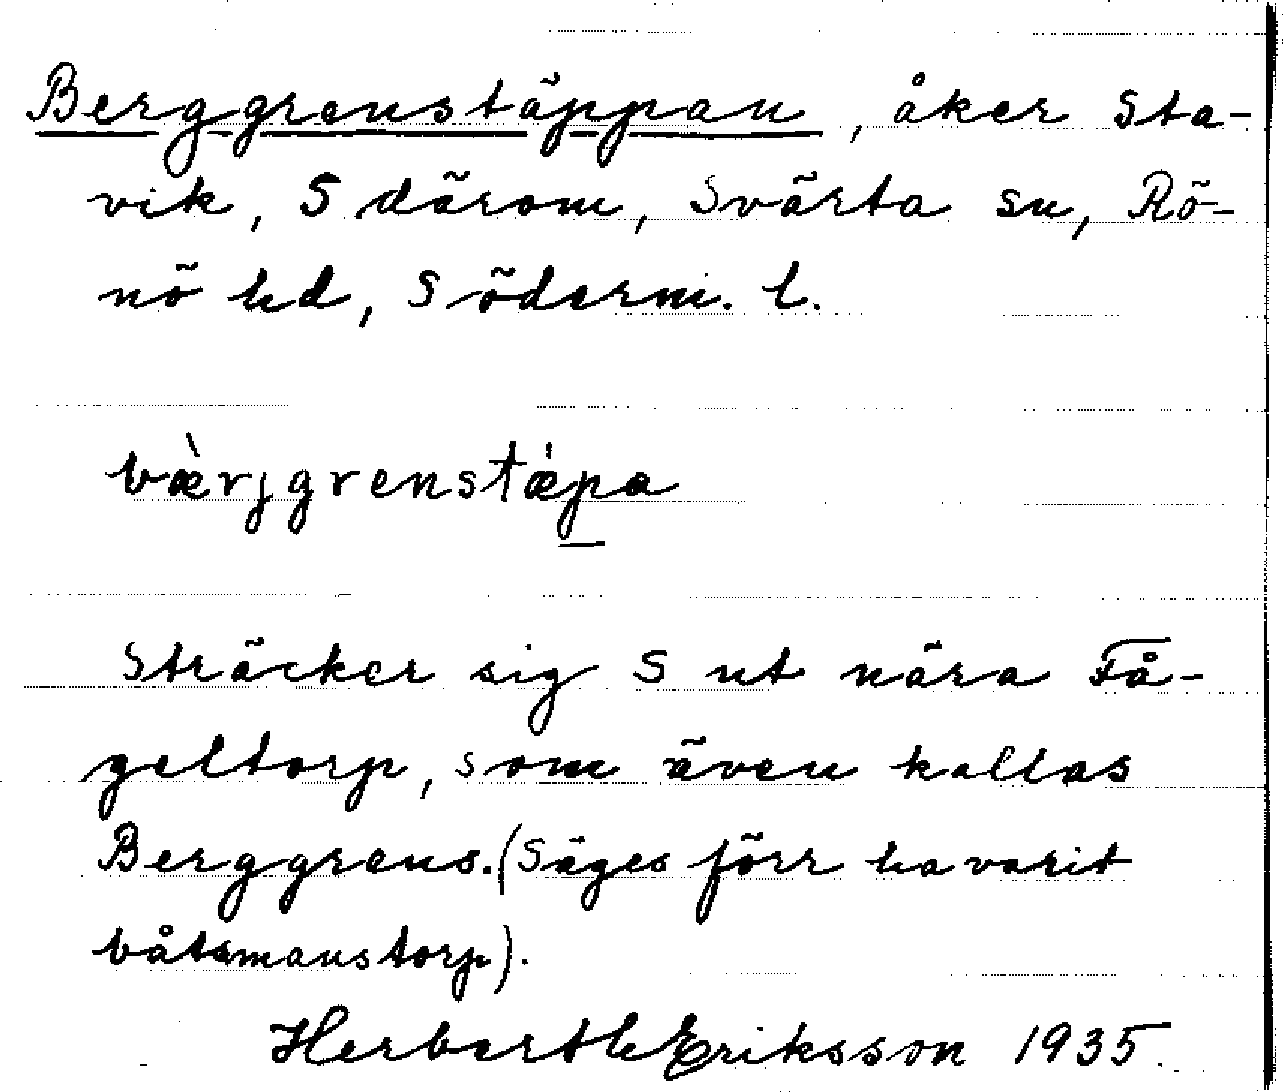 Berggrenstäppan, åker Sta-
vik, S därom, Svärta sn, Rö-
nö hd, Söderm. l.
bæ̀rjgrenstǽpa
Sträcker sig S ut nära Få-
geltorp, som även kallas
Berggrens. (Säges förr ha varit
båtsmanstorp).
Herberth Eriksson 1935.